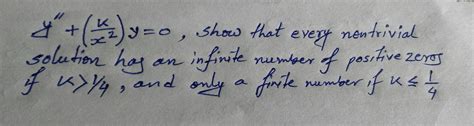 y'' + (k/x²) y = 0 , show that every nontrivial
solution has an infinite number of positive zeros
if k > 1/4 , and only a finite number if k ≤ 1/4